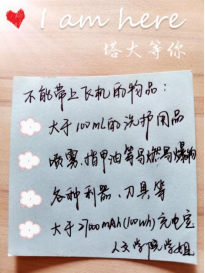 I am here
塔大等你
不能带上飞机的物品:
大于100ml的洗护用品
喷雾、指甲油等易燃易爆物
各种利器、刀具等
大于27000mAh(100wh)充电宝
人文学院学姐